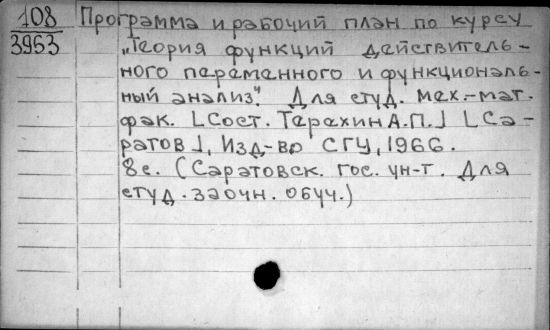 108 Программа и рабочий план по курсу
3963 „Теория функций действитель-
ного переменного и функциональ-
ный анализ". Для студ. мех.-мат.
фак. [Сост. Терехин А.П.] [Са-
ратов], Изд-во СГУ, 1966.
8с. (Саратовск. гос. ун-т. Для
студ. заочн. обуч.)